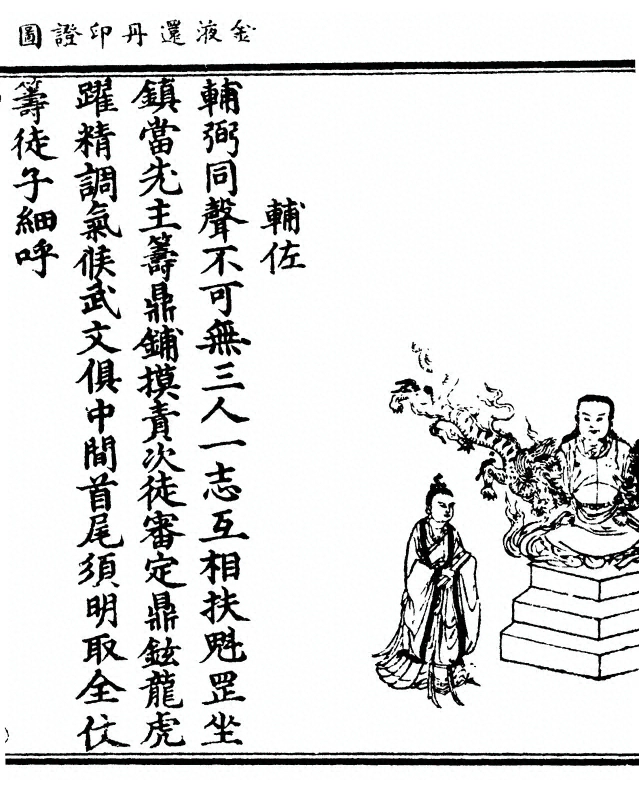 金液還丹印證圖
輔佐
輔弼同聲不可無三人一志互相扶魁罡坐
鎮當先主籌鼎鋪摸責次徒審定鼎鉉龍虎
躍精調氣候武文俱中間首尾須明取全仗
籌徒子細呼